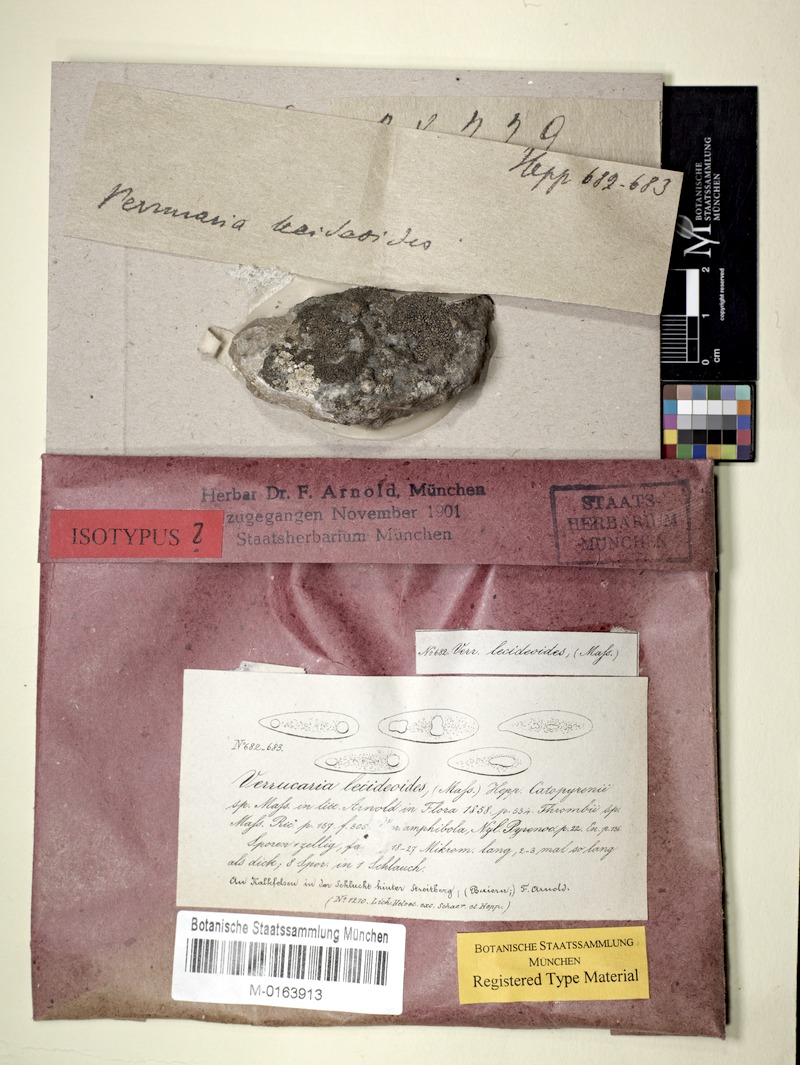 Hepp 682-683
Verrucaria lecideoides
BOTANISCHE
STAATSSAMMLUNG
MÜNCHEN
copyright reserved
0 1 2
cm
Herbar Dr. F. Arnold, München
zugegangen November 1901
Staatsherbarium München
STAATS-
HERBARIUM
MÜNCHEN
ISOTYPUS ?
No 682. Verr. lecideoides, (Mass.)
No 682-683.
Verrucaria lecideoides, (Mass.) Hepp. Catopyrenii
sp. Mass. in litt. Arnold in Flora 1858, p. 554. Thrombii sp.
Mass. Ric. p. 157. f. amphibola, Nyl. Pyrenoc. p. 22. En. p.
Sporen 1zellig, 18-27 Mikrom. lang, 2-3 mal so lang
als dick; 8 Spor. in 1 Schlauch.
An Kalkfelsen in der Schlucht hinter Streitberg, (Baiern;) F. Arnold.
(No 1210. Lich. Helvet. exs. Schaer. et Hepp.)
Botanische Staatssammlung München
M-0163913
BOTANISCHE STAATSSAMMLUNG
MÜNCHEN
Registered Type Material